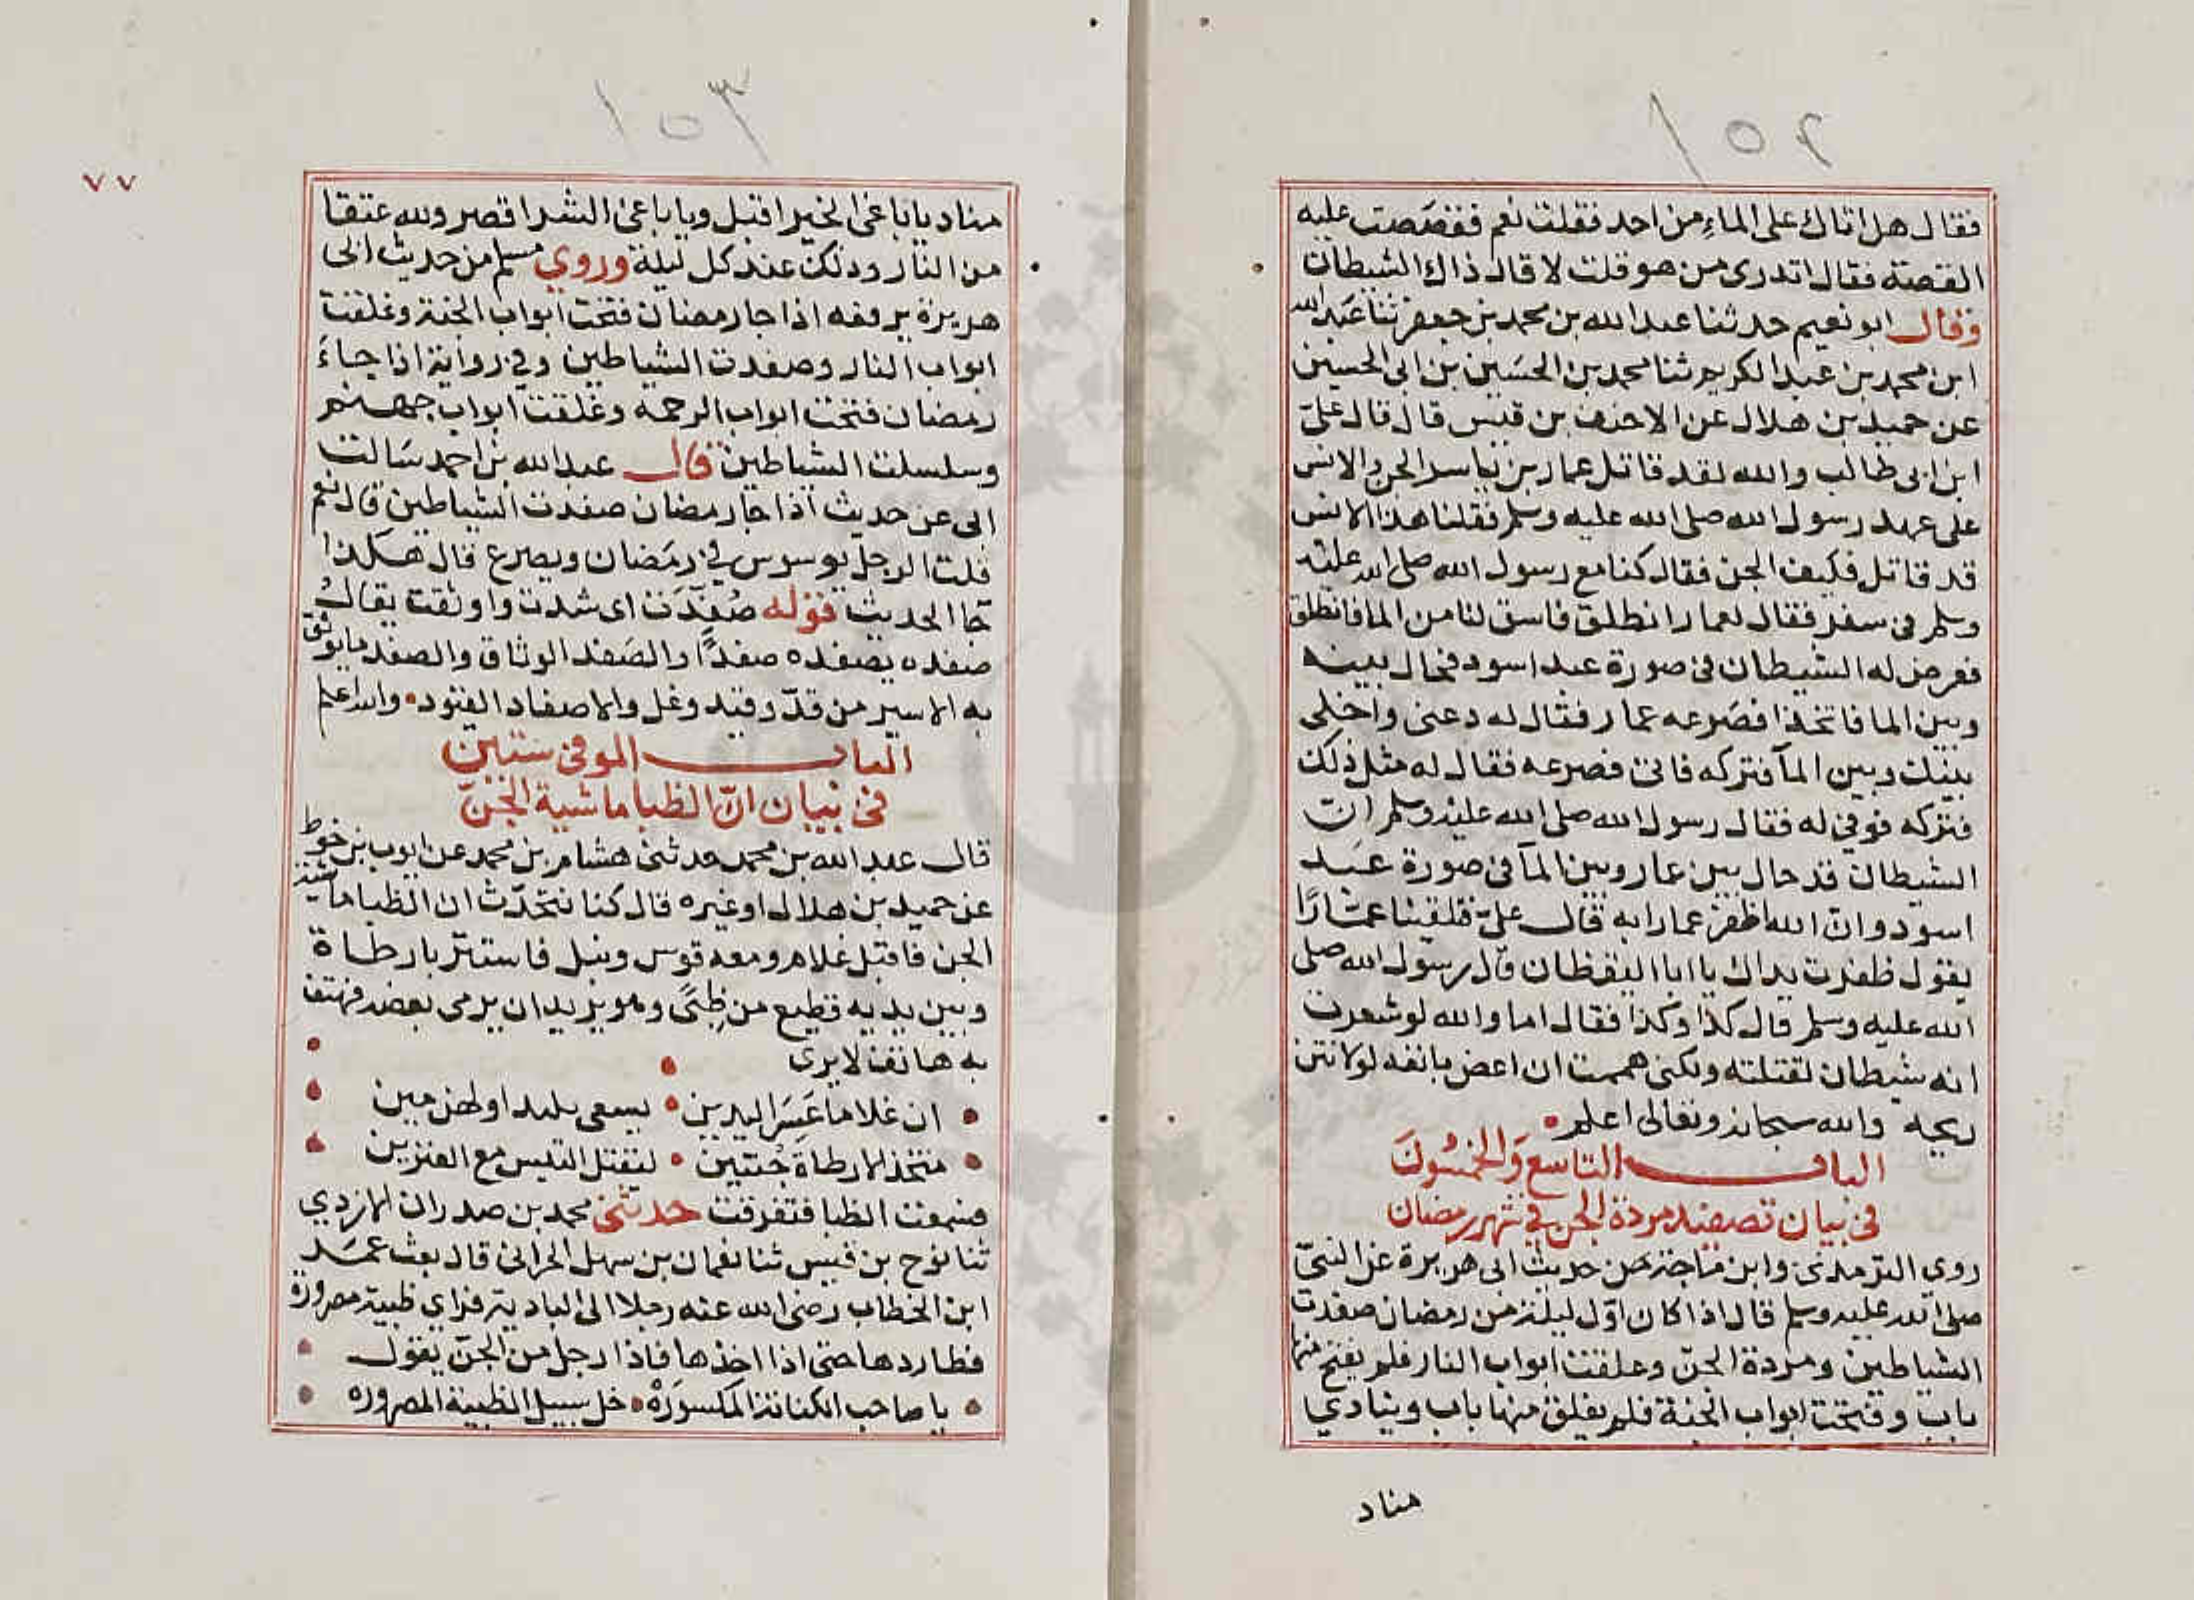 ١٥٢
فقال هل اتاك على الماء من احد فقلت نعم فقصصت عليه
القصة فقال اتدرى من هو قلت لا قال ذاك الشيطان
وقال ابو نعيم حدثنا عبد الله بن محمد بن جعفر ثنا عبد الله
ابن محمد بن عبد الكريم ثنا محمد بن الحسين بن ابى الحسين
عن حميد بن هلال عن الاحنف بن قيس قال قال علىّ
ابن ابى طالب والله لقد قاتل عمار بن ياسر الجن والانس
على عهد رسول الله صلى الله عليه وسلم فقلنا هذا الانس
قد قاتل فكيف الجن فقال كنا مع رسول الله صلى الله عليه
وسلم فى سفر فقال لعمار انطلق فاسق لنا من الما فانطلق
فعرض له الشيطان فى صورة عبد اسود فحال بينه
وبين الما فاتخذا فصرعه عمار فقال له دعنى واخلى
بينك وبين المآ فتركه فاتى فصرعه فقال له مثل ذلك
فتركه فوفى له فقال رسول الله صلى الله عليه وسلم ان
الشيطان قد حال بين عمار وبين المآ فى صورة عبد
اسود وان الله اظفر عمارا به قال علىّ فلقينا عمّارًا
يقول ظفرت يداك يا ابا اليقظان قال رسول الله صلى
الله عليه وسلم قال كذا وكذا فقال اما والله لو شعرت
انه شيطان لقتلته ولكنى هممت ان اعض بانفه لولا نتن
ريحه والله سبحانه وتعالى اعلم
الباب التاسع والخمسون
فى بيان تصفيد مردة الجن فى شهر رمضان
روى الترمذى وابن ماجة من حديث ابى هريرة عن النبىّ
صلى الله عليه وسلم قال اذا كان اوّل ليلة من رمضان صفدت
الشياطين ومردة الجنّ وغلقت ابواب النار فلم يفتح منها
باب وفتحت ابواب الجنة فلم يغلق منها باب وينادي
مناد
١٥٣
٧٧
مناد يا باغى الخير اقبل ويا باغى الشر اقصر ولله عتقا
من النار وذلك عند كل ليلة وروي مسلم من حديث ابى
هريرة يرفعه اذا جا رمضان فتحت ابواب الجنة وغلقت
ابواب النار وصفدت الشياطين وفى رواية اذا جاء
رمضان فتحت ابواب الرحمة وغلقت ابواب جهنم
وسلسلت الشياطين قال عبد الله بن احمد سالت
ابى عن حديث اذا جا رمضان صفدت الشياطين قال نعم
قلت الرجل يوسوس فى رمضان ويصرع قال هكذا
جا الحديث قوله صُفّدَت اى شدت واوثقت يقال
صفده يصفده صفدًا والصفد الوثاق والصفد ما يوثق
به الاسير من قدّ وقيد وغل والاصفاد القيود والله اعلم
الباب الموفى ستين
فى بيان انّ الظبا ماشية الجنّ
قال عبد الله بن محمد حدثنى هشام بن محمد عن ايوب بن خوط
عن حميد بن هلال او غيره قال كنا نتحدّث ان الظبا ماشية
الجن فاقبل غلام ومعه قوس ونبل فاستتر بارطاة
وبين يديه قطيع من ظبى وهو يريد ان يرمى بعضه فهتف
به هاتف لا يرى
ان غلاما عَسِرَ اليدين يسعى بلبد او لهزمين
متخذ الارطاة جُنتين ليقتل التيس مع العنزين
فسمعت الظبا فتفرقت حدثنى محمد بن صدران الازدي
ثنا نوح بن قيس ثنا نعمان بن سهل الحرانى قال بعث عمر
ابن الخطاب رضى الله عنه رجلا الى البادية فراى ظبية مصرورة
فطاردها حتى اذا اخذها فاذا رجل من الجنّ يقول
يا صاحب الكنانة المكسورة خل سبيل الظبية المصروره